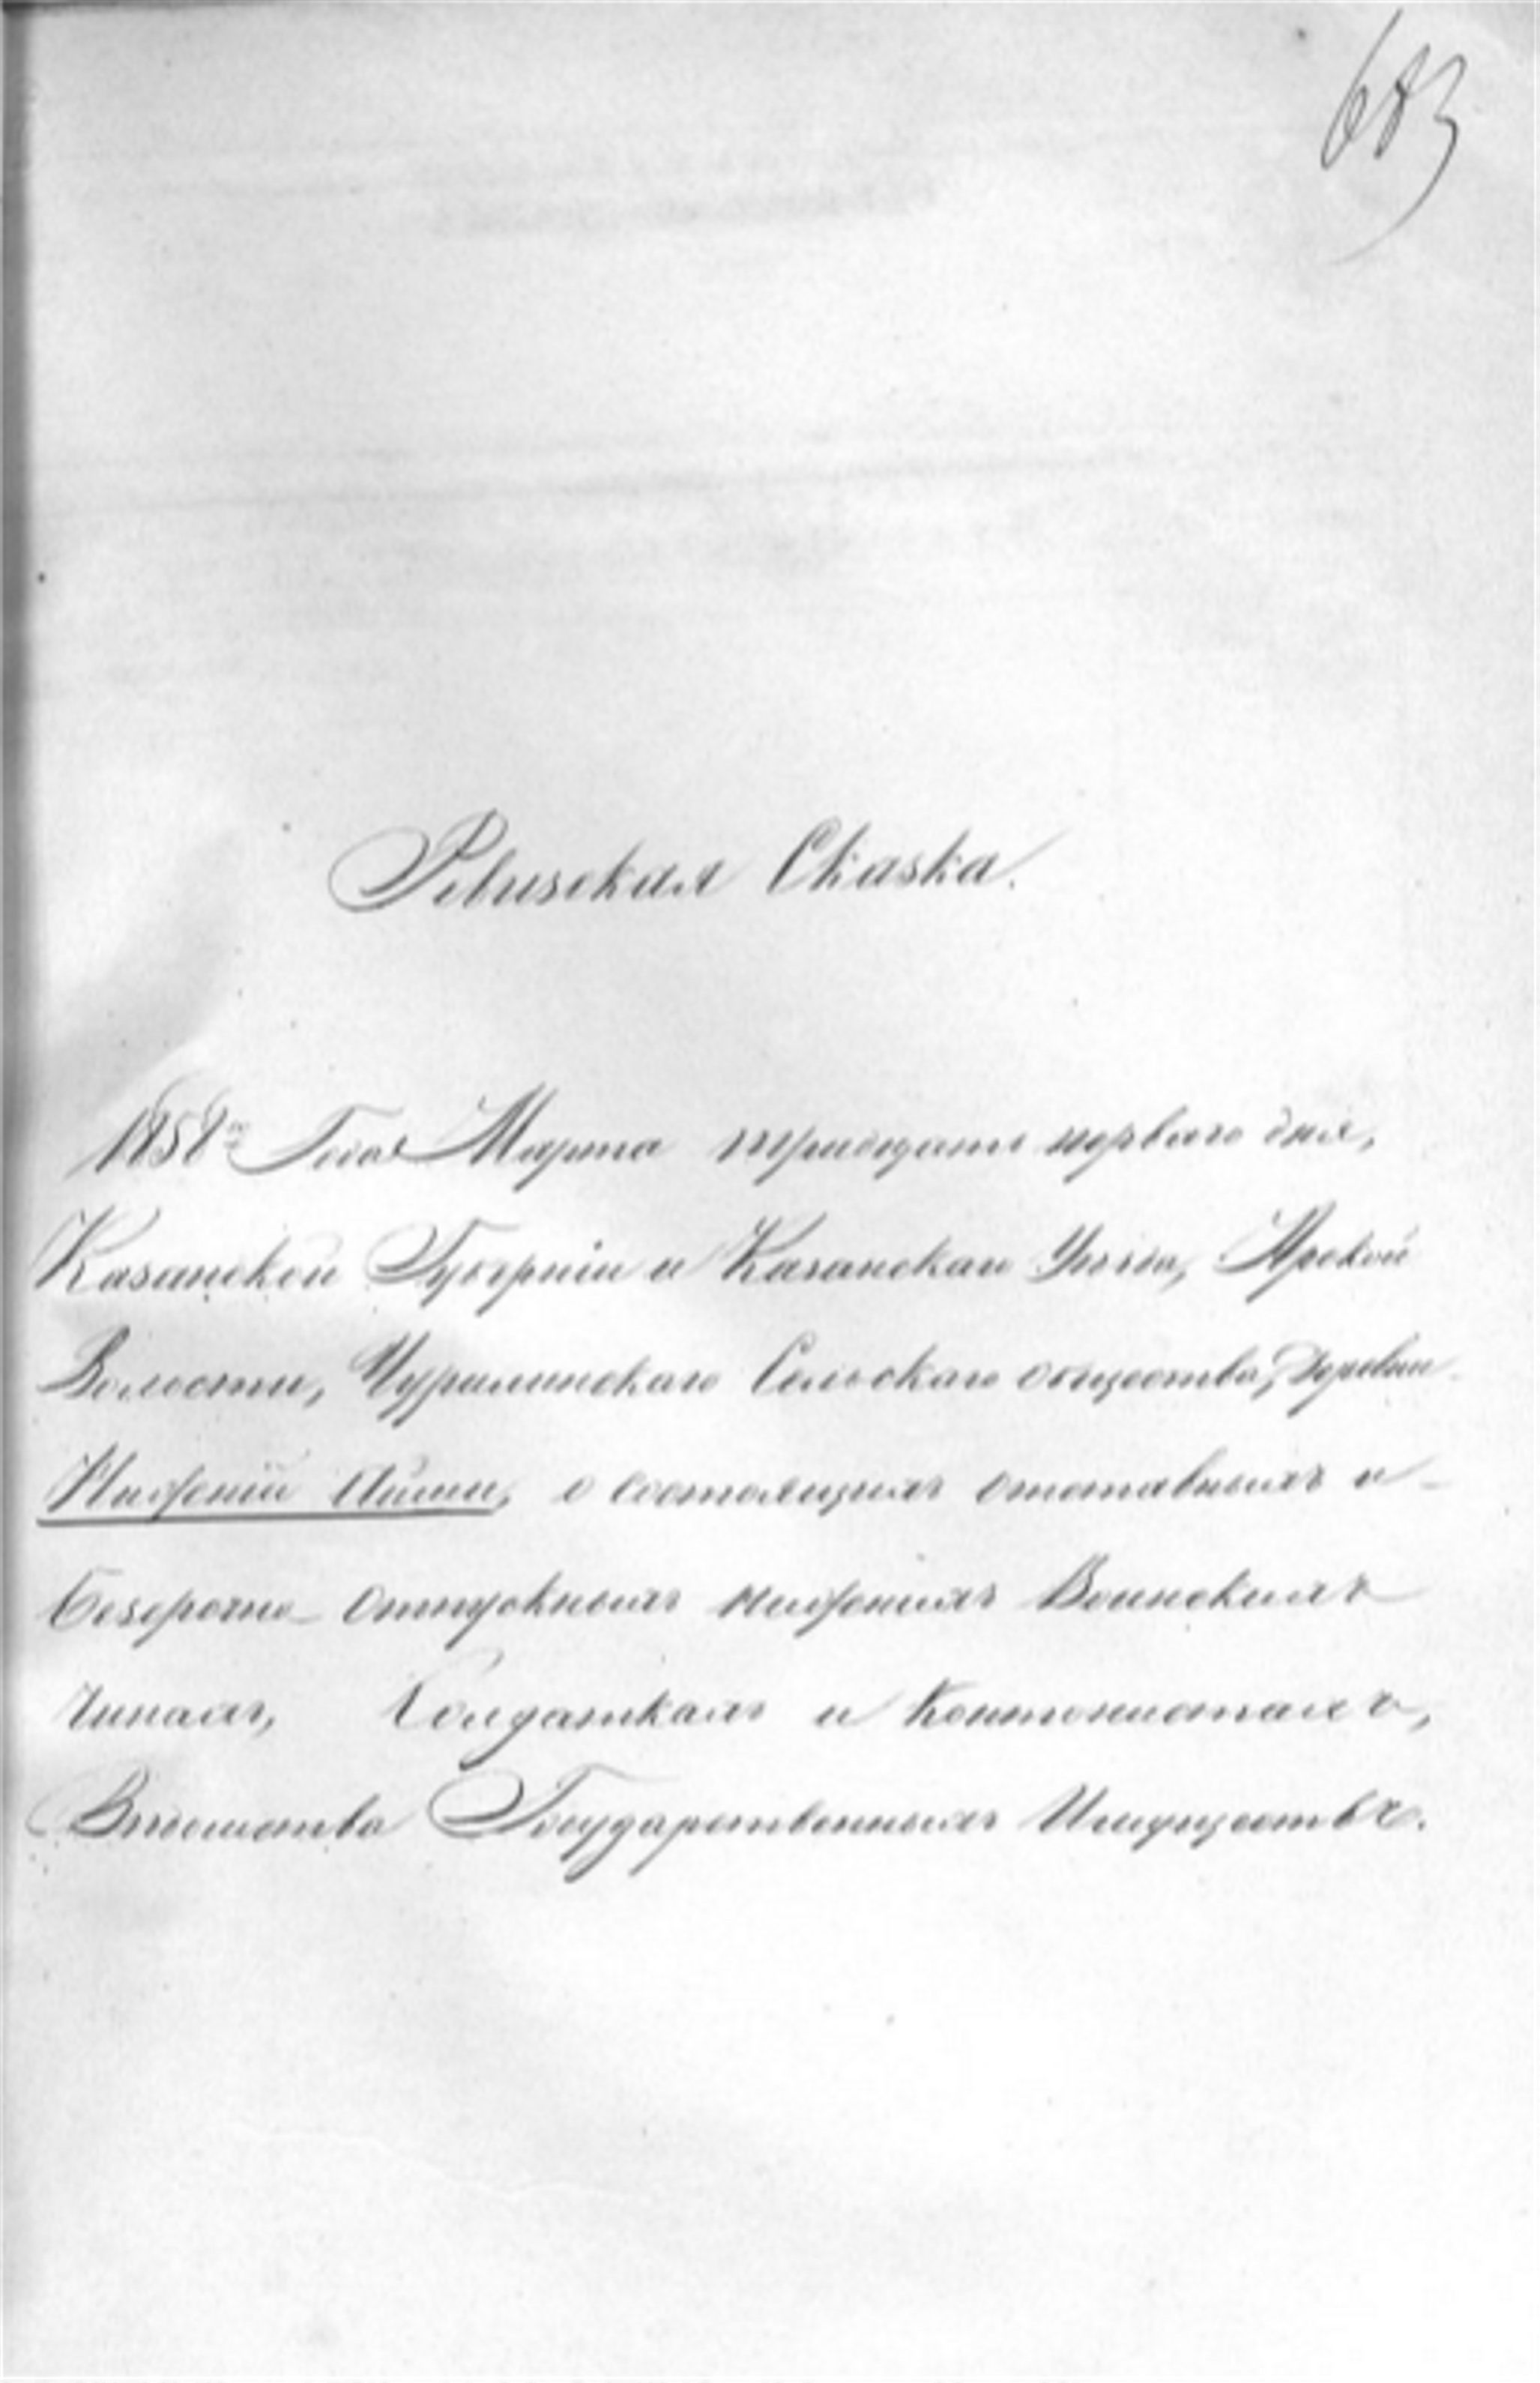 683
Ревизская Сказка.
1858го Года Марта тридцать перваго дня,
Казанской Губерніи и Казанскаго Уезда, Арской
Волости, Чурилинскаго Сельскаго общества, Деревни
Нижній Айши, о состоящихъ отставныхъ и
безсрочно-отпускныхъ нижнихъ Воинскихъ
Чинахъ, Солдаткахъ и Кантонистахъ,
Ведомства Государственныхъ Имуществъ.